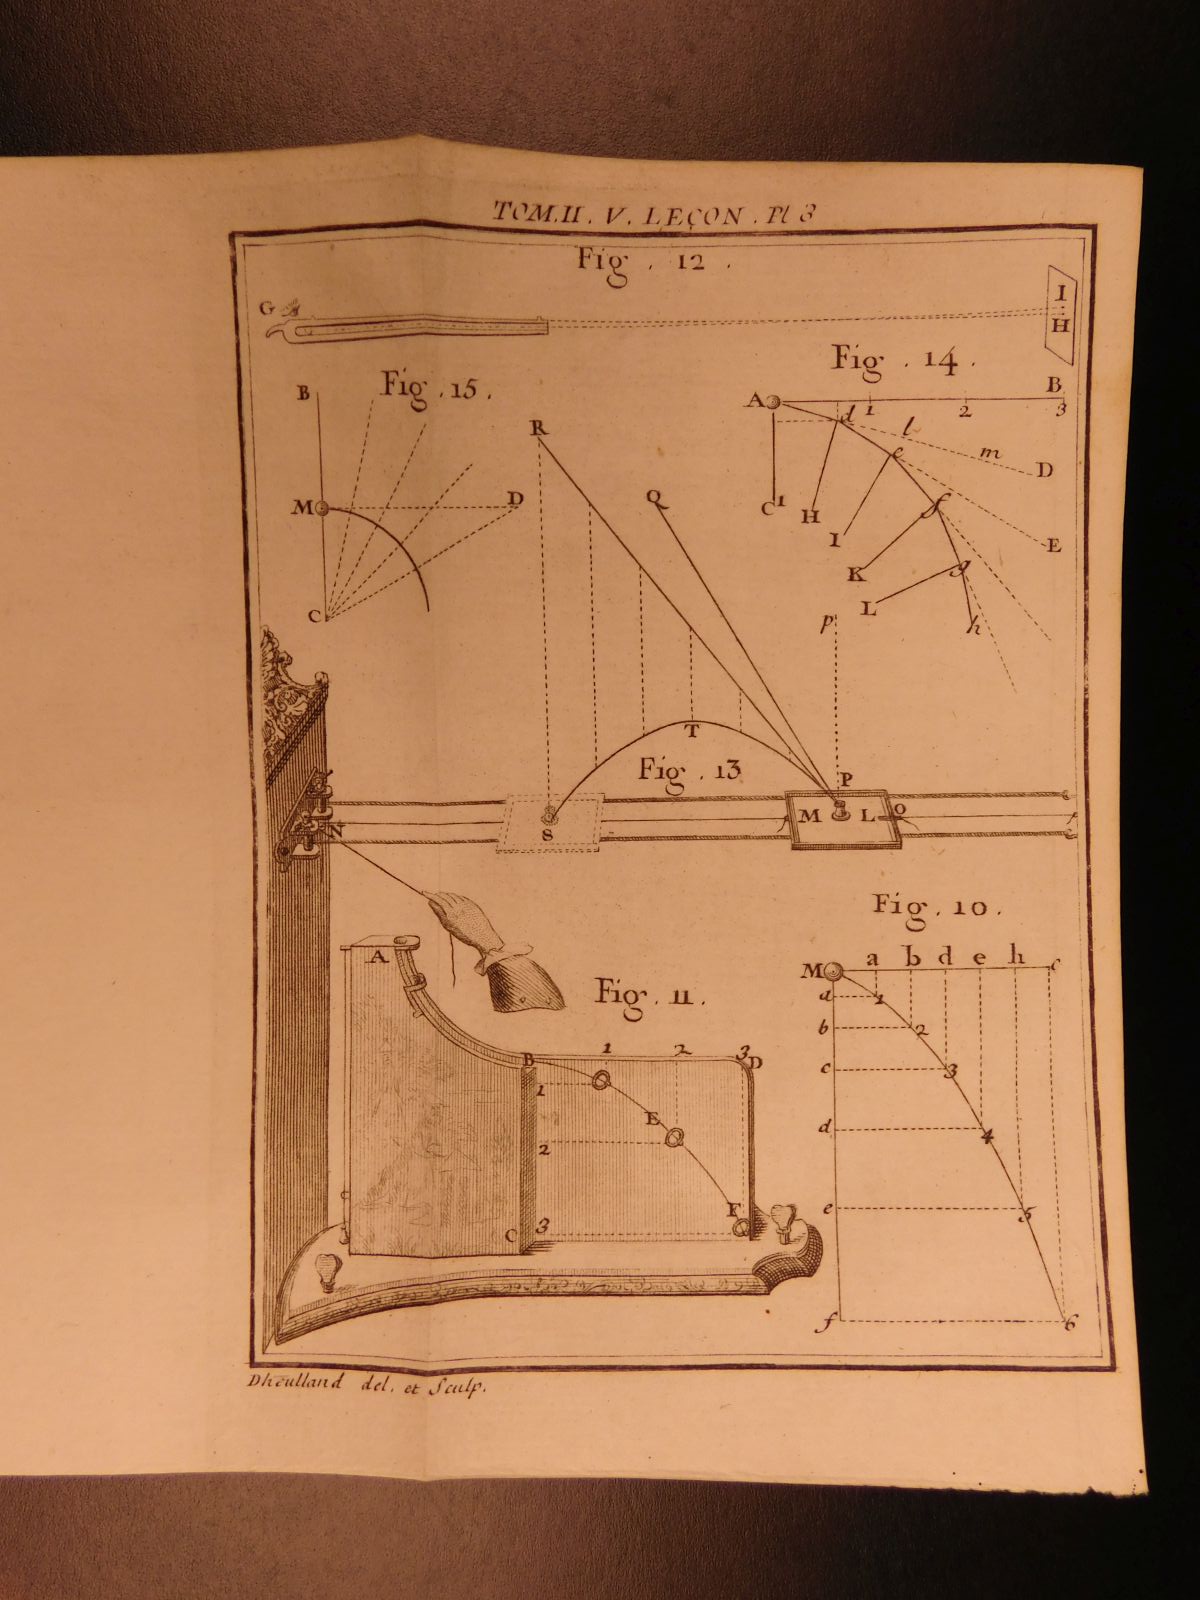 TOM.II. V. LEÇON. Pl 3
Fig. 12.
G
I
H
Fig. 15.
B
M
D
C
Fig. 14.
A
B
1
2
3
d
l
e
m
D
C
1
H
I
f
E
K
g
L
h
R
Q
p
T
Fig. 13
P
N
S
M
L
O
Fig. 10.
M
a b d e h c
a
1
b
2
c
3
d
4
e
5
f
6
Fig. 11.
A
B
1
2
3
D
1
E
2
F
C
3
Dheulland del. et Sculp.